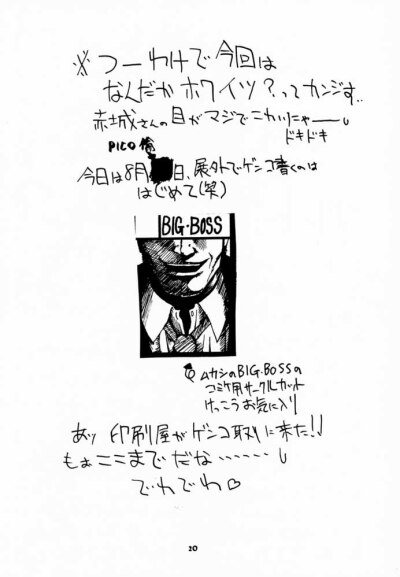 ※つーわけで今回は
なんだかホワイツ?ってカンジす..
赤城さんの目がマジでこわいにゃーー
ドキドキ
PICO
今日は8月 日、展外でゲンコ書くのは
はじめて(笑)
BIG・BOSS
ムカシのBIG・BOSSの
コミケ用サークルカット
けっこうお気に入り
あっ 印刷屋がゲンコ取りに来た!!
もぉここまでだな……
でわでわ♡
20